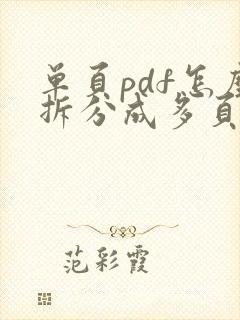 单页pdf怎么
拆分成多页
范彩霞